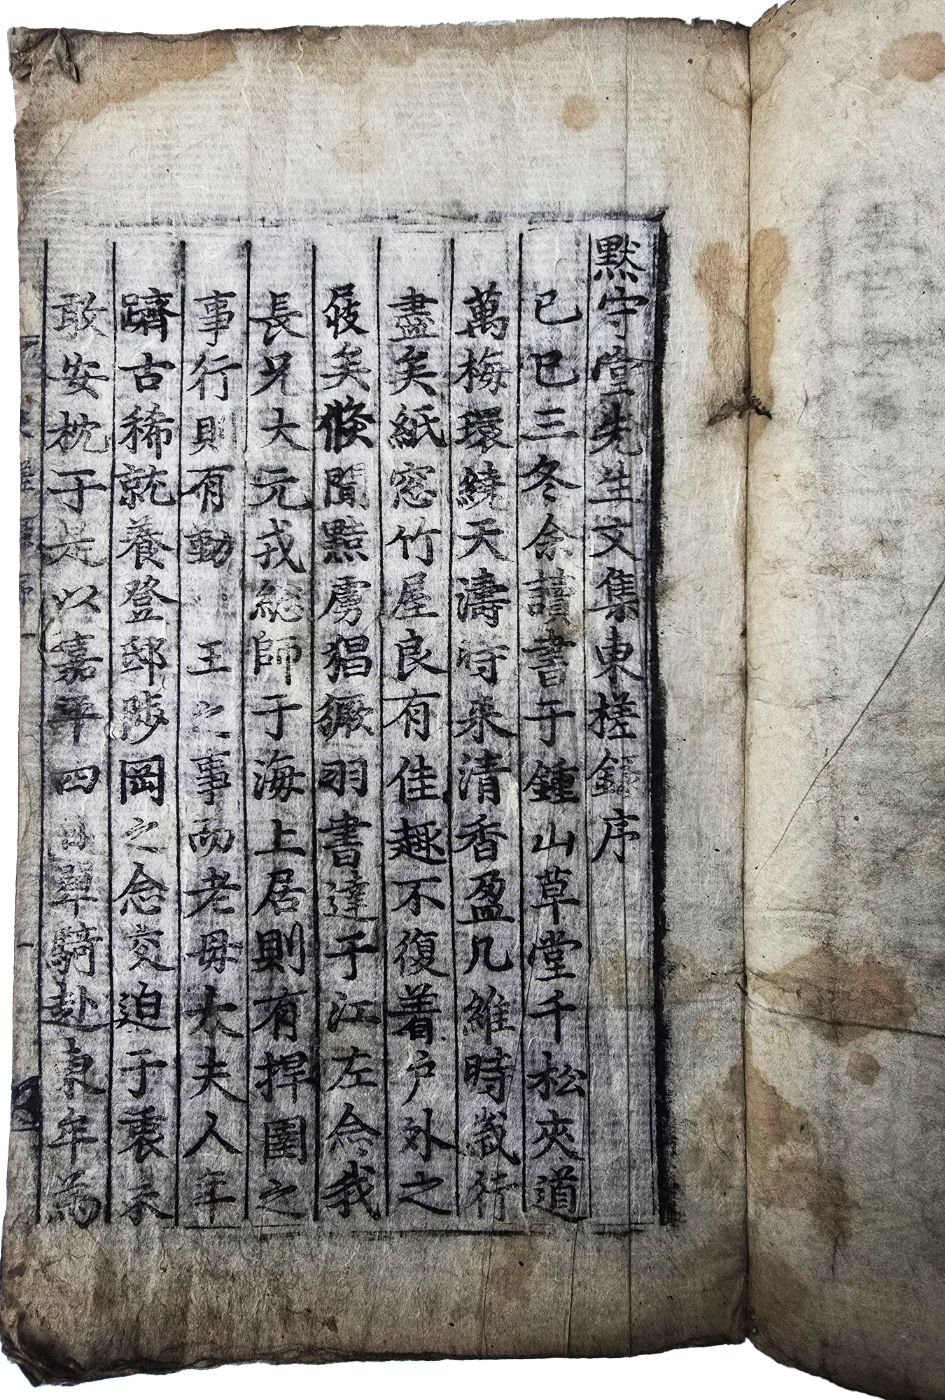 默守堂先生文集東槎錄序
己巳三冬余讀書于鍾山草堂千松夾道
萬梅環繞天濤時來清香盈几維時歲行
盡矣紙窓竹屋良有佳趣不復着戶外之
屐矣倏聞黠虜猖獗羽書達于江左念我
長兄大元戎總師于海上居則有捍圉之
事行則有勤王之事而老毋太夫人年
躋古稀就養登邸陟岡之念交迫于衷未
敢安枕于是以嘉平四日單騎赴東牟爲